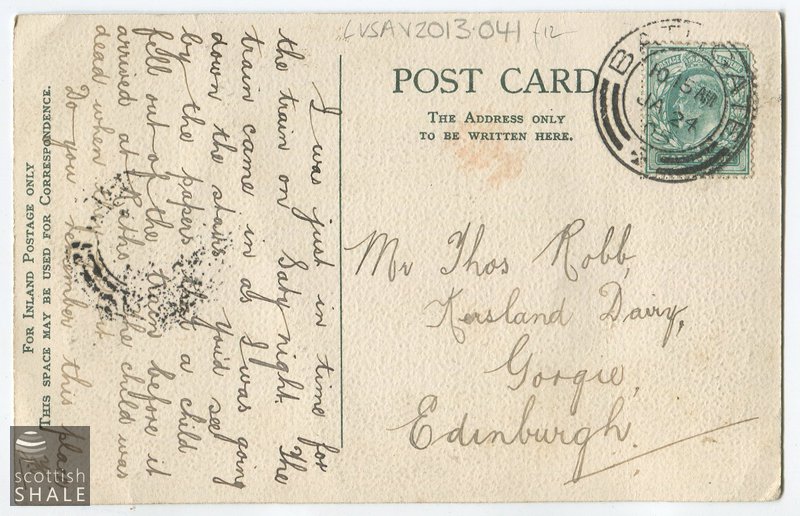 LVSAV2013.041 /12
POST CARD
THE ADDRESS ONLY
TO BE WRITTEN HERE.
POSTAGE
10.15 AM
JA 24
FOR INLAND POSTAGE ONLY
THIS SPACE MAY BE USED FOR CORRESPONDENCE.
I was just in time for
the train on Satʸ night. The
train came in as I was going
down the stairs. You'd see
by the papers that a child
fell out of the train before it
arrived at Ratho. The child was
dead when they
Do you remember this place
Mr Thos Robb,
Kersland Dairy,
Gorgie,
Edinburgh.
scottish
SHALE